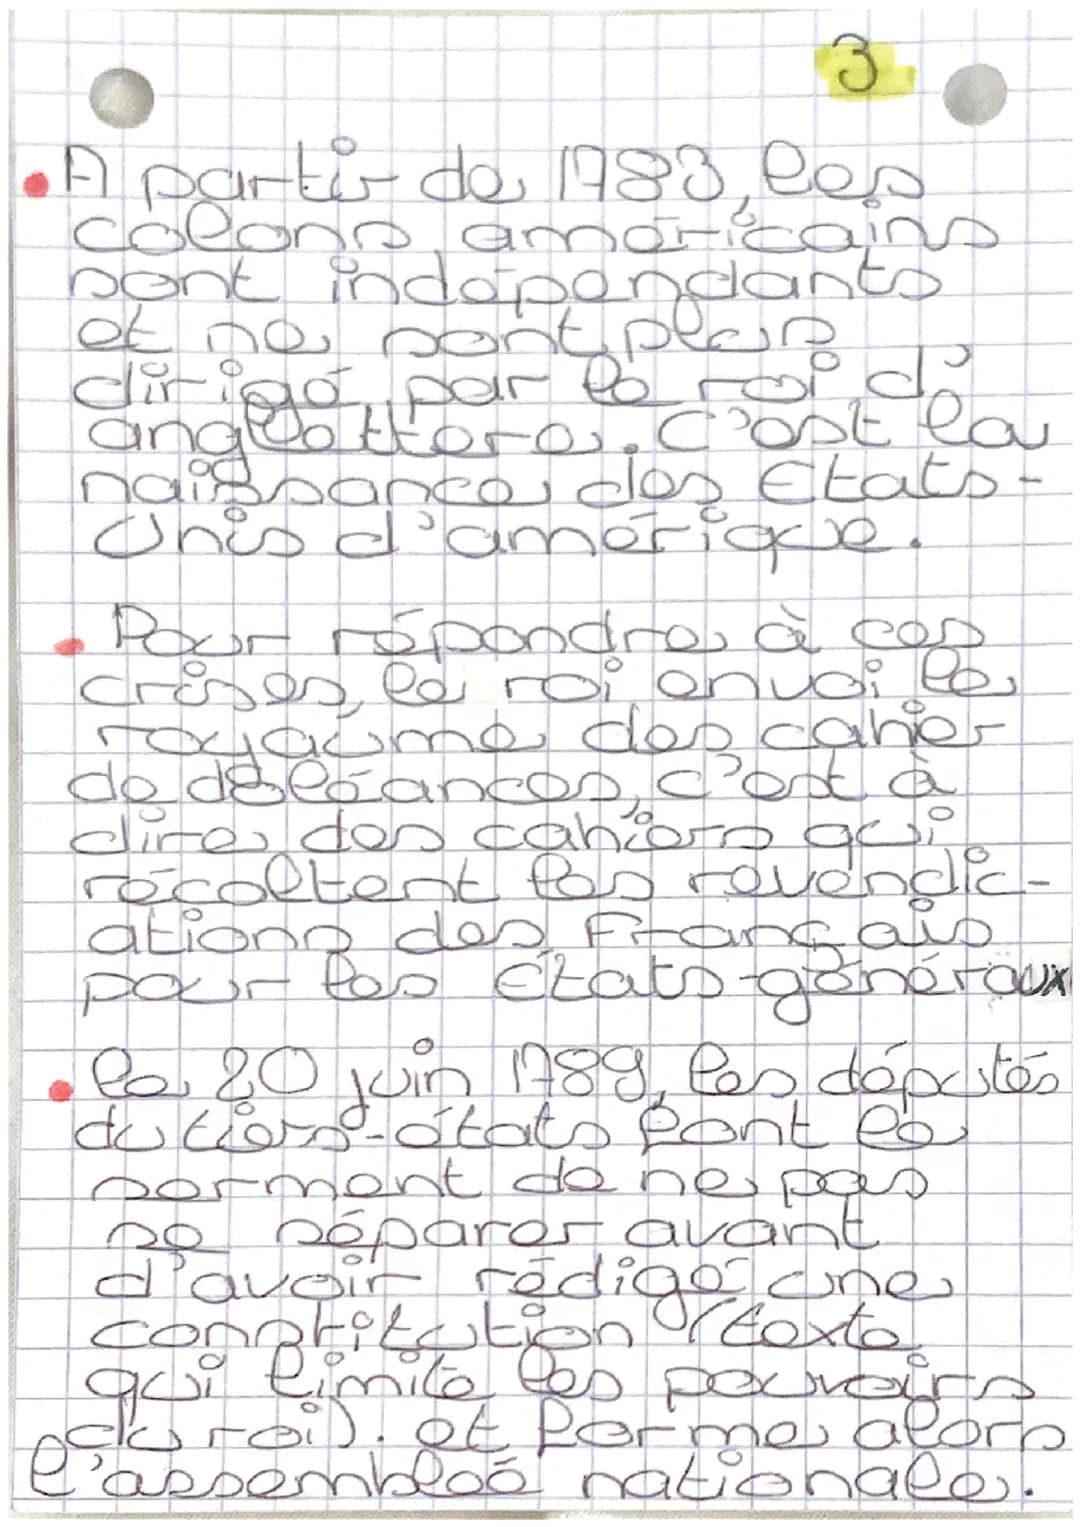 3
• A partir de 1783, les
colons américains
sont indépendants
et ne sont plus
dirigé par le roi d'
anglettere. C'est la
naissance des Etats-
Unis d'amérique.
• Pour répondre à ces
crises, le roi envoi le
royaume des cahier
de doléances, c'est à
dire des cahiers qui
récoltent les revendic-
ations des Français
pour les États-généraux
• le 20 juin 1789, les députés
du tiers-états font le
serment de ne pas
se séparer avant
d'avoir rédigé une
constitution (texte
qui limite les pouvoirs
du roi). et forme alors
l'assembleé nationale.